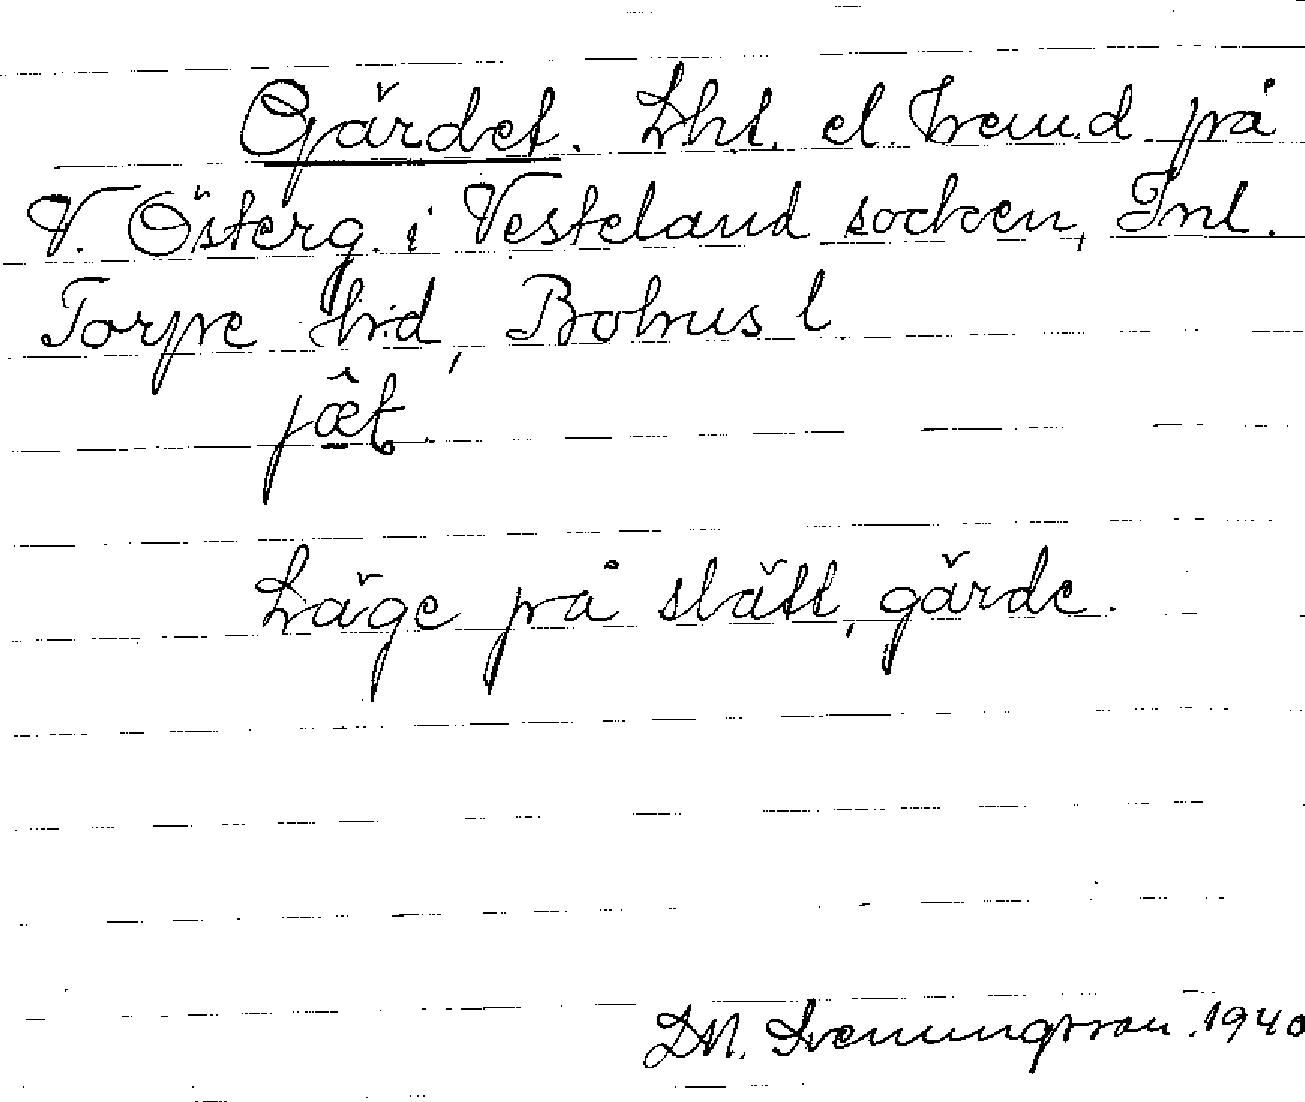 Gärdet. Lht. el. hem.d på
V. Österg. i Vesteland socken, Inl.
Torpe hrd, Bohus l
jæ̂t.
Läge på slätt, gärde.
Svenungsson. 1940